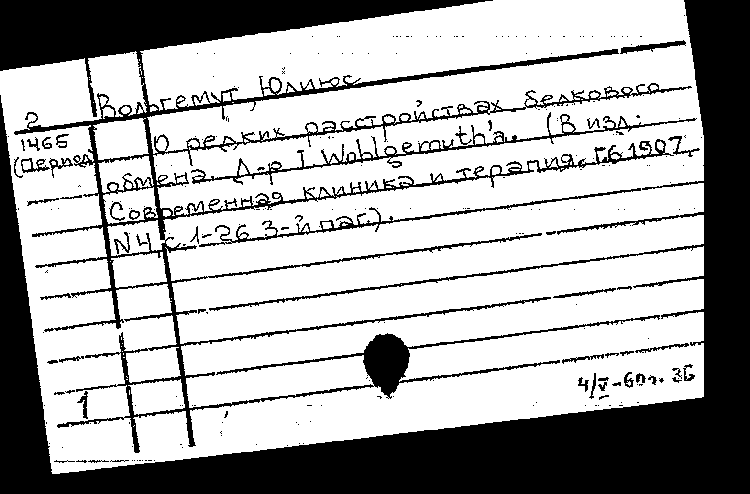 2
Вольгемут, Юлиюс
1465
(Период)
О редких расстройствах белкового
обмена. Д-р I Wohlgemuth'a. (В изд:
Современная клиника и терапия. Г.6 1907
N4 с. 1-26 3-й паг.).
1
4/V-60г. ЗБ